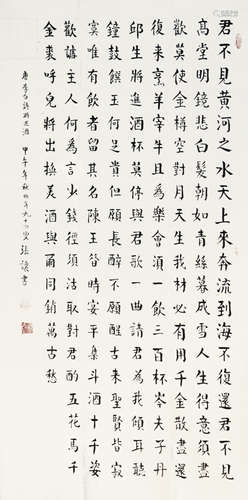 君不見黃河之水天上來奔流到海不復還君不見
高堂明鏡悲白髮朝如青絲暮成雪人生得意須盡
歡莫使金樽空對月天生我材必有用千金散盡還
復來烹羊宰牛且為樂會須一飲三百杯岑夫子丹
邱生將進酒杯莫停與君歌一曲請君為我傾耳聽
鐘鼓饌玉何足貴但願長醉不願醒古來聖賢皆寂
寞唯有飲者留其名陳王昔時宴平樂斗酒十千恣
歡謔主人何為言少錢徑須沽取對君酌五花馬千
金裘呼兒將出換美酒與爾同銷萬古愁
唐李白詩將進酒 甲午年秋 張 書